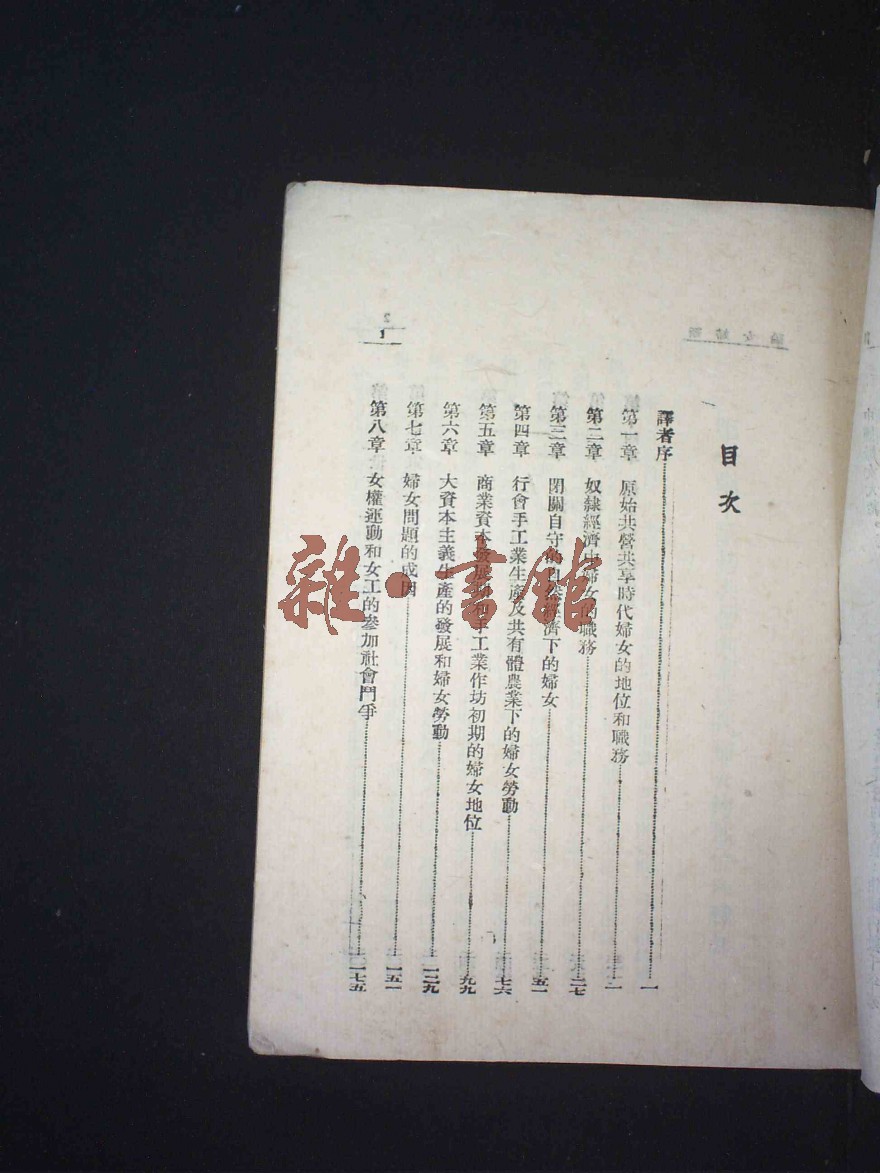 目次
譯者序 一
第一章 原始共營共享時代婦女的地位和職務 一
第二章 奴隸經濟中婦女的職務 二七
第三章 閉關自守的自然經濟下的婦女 五一
第四章 行會手工業生產及共有體農業下的婦女勞動 七六
第五章 商業資本發展期和手工業作坊初期的婦女地位 九九
第六章 大資本主義生產的發展和婦女勞動 一二九
第七章 婦女問題的成因 一五一
第八章 女權運動和女工的參加社會鬥爭 一七五
1
雜·書館